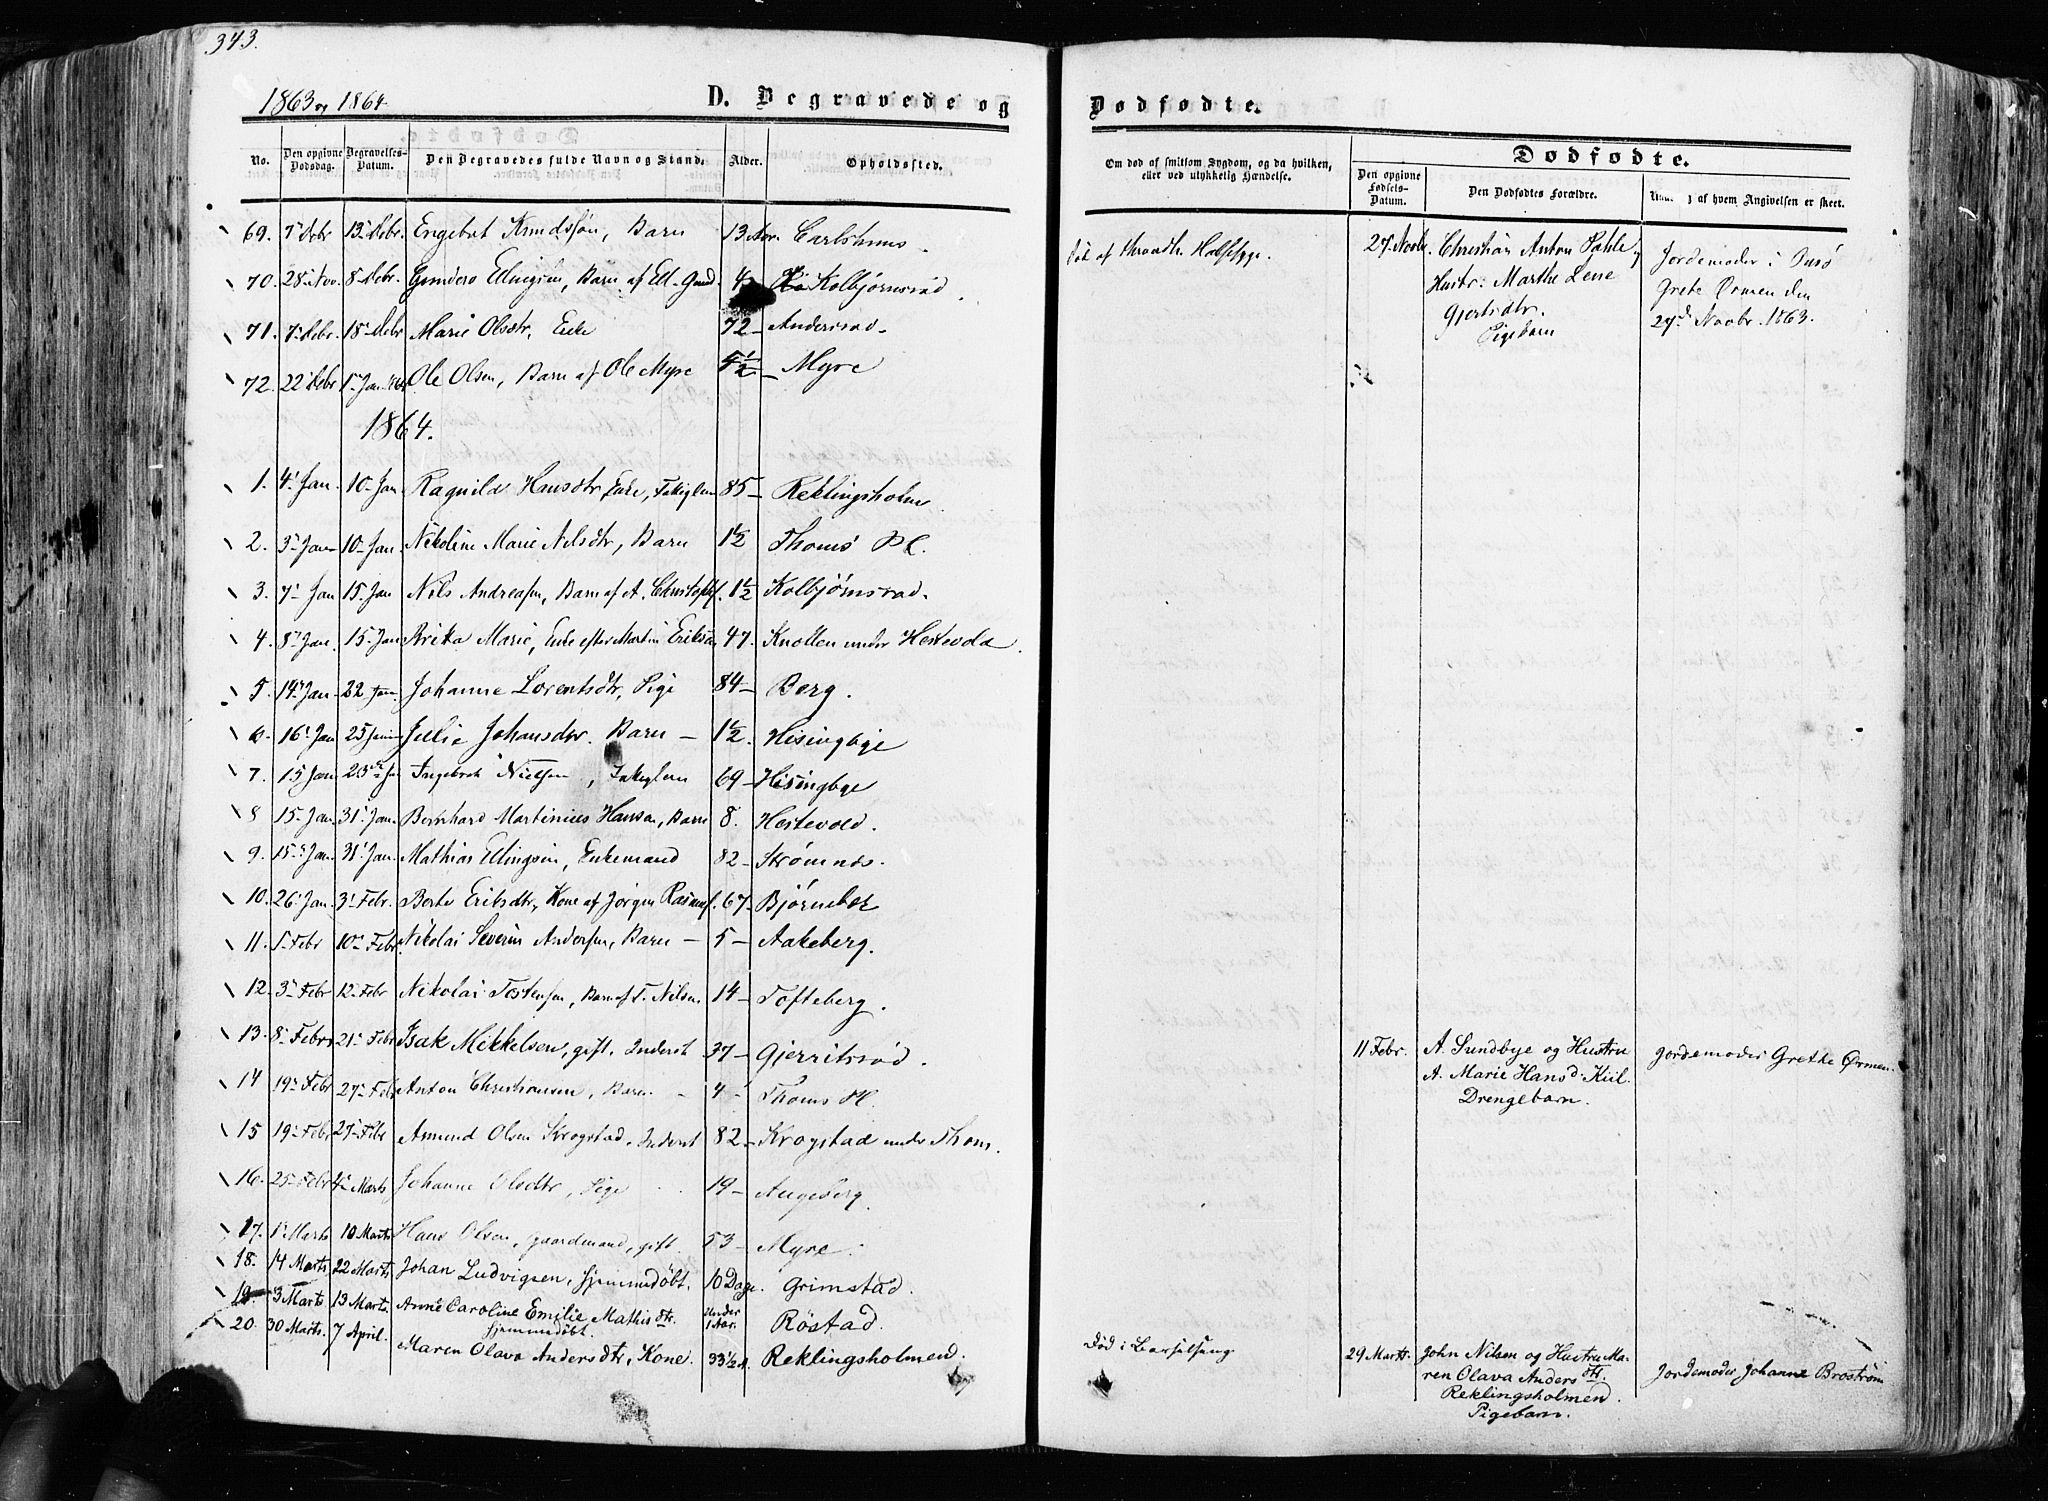 343.
1863 og 1864.
D. Begravede og
Dødfødte.
No.
Den opgivne Dødsdag.
Begravelses-Datum.
Den Begravedes fulde Navn og Stand.
Alder.
Opholdssted.
Om død af smitsom Sygdom, og da hvilken, eller ved ulykkelig Hændelse.
Dødfødte.
Den opgivne Fødsels-Datum.
Den Dødfødtes Forældre.
af hvem Angivelsen er skeet.
69. 7 Debr 13 Debr. Engebret Knudssøn, Barn 13 Aar. Carlshuus.
Død af Halssyge.
70. 28 Nov. 8 Debr. Gundero Ellingsen, Barn af Ell. Gund. 4 Kolbjørnsrød.
71. 7 Debr. 18 Debr Marie Olsdtr, Enke 72 - Andersrød
72. 22 Debr 1 Jan. Ole Olsen, Barn af Ole Myre - Myre
27. Novbr. Christian Anton Pahle og
Hustr: Marthe Lene
Gjertsdtr.
Pigebarn
Jordemoder i Onsø
Grete Ørmen den
27de Novbr. 1863.
1864.
1. 4 Jan. 10 Jan Ragnild Hansdtr, Enke, Fatiglem 85 - Reklingsholm
2. 3 Jan 10 Jan Nikoline Marie Nilsdtr, Barn 1½ Thoms Pl.
3. 7 Jan 15 Jan Nils Andreasen, Barn af A. Christophs. 1½ Kolbjørnsrød.
4. 8 Jan. 15 Jan Brita Marie, Enke efter Martin Eriksen 47. Knollen under Hestevold.
5. 14 Jan 22 Jan. Johanne Lorentsdtr, Pige 84 - Berg.
6. 16 Jan 25 Janu Julie Johansdtr. Barn - 1½. Hisingbye
7. 15 Jan 23 Ja Ingebret Nielsen, Fatiglem 69 - Hisingbye
8 15 Jan. 31 Jan. Bernhard Martinius Hansen, Barn 8. Hestevold.
9. 15 Jan. 31 Jan. Mathias Ellingsen, Enkemand 82 - Strømnes.
10. 26 Jan. 3 Febr. Berte Eriksdtr, Kone af Jørgen Rasmuss. 67 - Bjørnebek
11. 5 Febr 10 Febr. Nikolai Severin Andersen, Barn - 5 - Aakeberg.
12. 3 Febr 12 Febr Nikolai Tostensen, Barn af T. Nilsen 14 - Tofteberg.
13. 8 Febr. 21 Febr. Isak Mikkelsen, gift. Inderst 37 - Gjerritsrød.
11 Febr. A. Sundbye og Hustru
A. Marie Hansd. Kiil.
Drengebarn.
Jordemoder Grethe Ørmen.
14 19 Febr 27 Febr Anton Christiansen, Barn - 4 - Thoms Pl.
15 19 Febr. 27 Febr Amund Olsen Krogstad. Inderst 82 - Krogstad under Thom.
16. 25 Febr 4 Marts Johanne Olsdtr, Pige 19 - Augeberg.
17. 1 Marts 10 Marts Hans Olsen, gaardmand, gift. 53 - Myre.
18. 14 Marts. 22 Marts Johan Ludvigsen, hjemmedøbt. 10 Dage. Grimstad.
19. 3 Marts 13 Marts. Anne Caroline Emilie Mathisdtr. Under 1 Aar. Røstad.
hjemmedøbt.
20. 30 Marts. 7 April. Maren Olava Andersdtr, Kone. 33½ A. Reklingsholmen.
Død i Barselseng
29 Marts. John Nilsen og Hustru Ma-
ren Olava Andersdtr.
Reklingsholmen.
Pigebarn.
Jordemoder Johanne Brostrøm